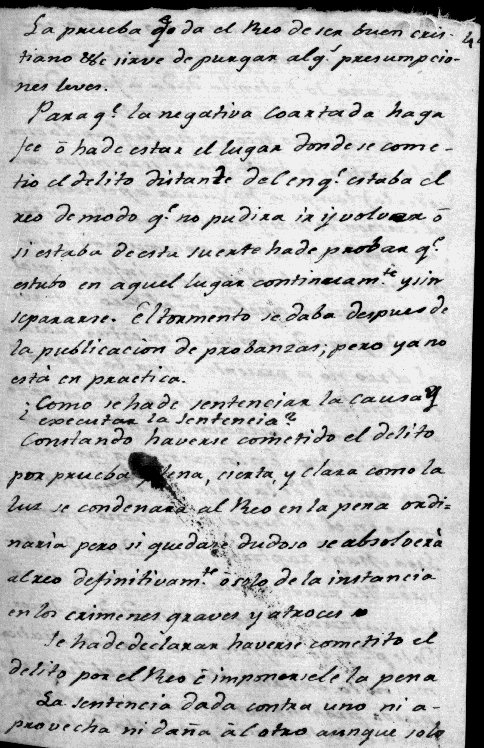 La prueba qe da el Reo de ser buen cris-
tiano &c sirve de purgar alg.s presumpcio-
nes leves.
Para q.e la negativa Coartada haga
fee ó hade estar el lugar donde se come-
tio el delito distante del en q.e estaba el
reo de modo q.e no pudira ir y volver ó
si estaba de esta suerte hade probar q.e
estubo en aquel lugar continuam.te y sin
separarse. El tormento se daba despues de
la publicacion de probanzas; pero ya no
está en practica.
¿Como se hade sentenciar la causa y
executar la sentencia?
Constando haverse cometido el delito
por prueba plena, cierta, y clara como la
luz se condenará al Reo en la pena ordi=
naria pero si quedare dudoso se absolverá
al reo definitivam.te ó solo de la instancia
en los crimenes graves y atroces
Se hade declarar haverse cometito el
delito por el Reo é imponersele la pena
La sentencia dada contra uno ni a-
provecha ni daña ál otro aunque solo